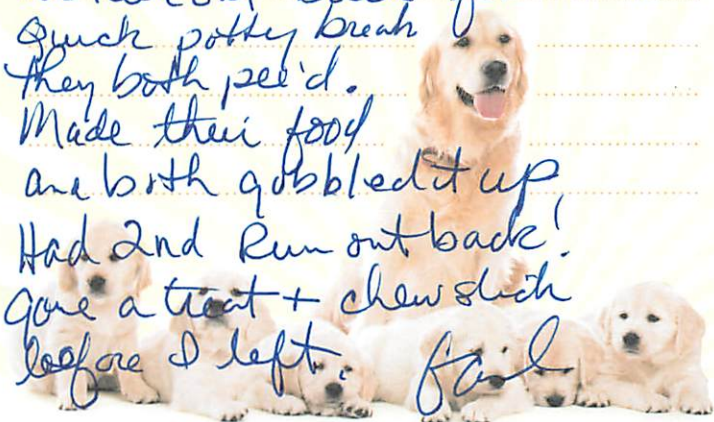 Quick potty break
they both pee'd.
Made their food
and both gobbled it up
Had 2nd Run out back!
gave a treat + chew stick
before I left.